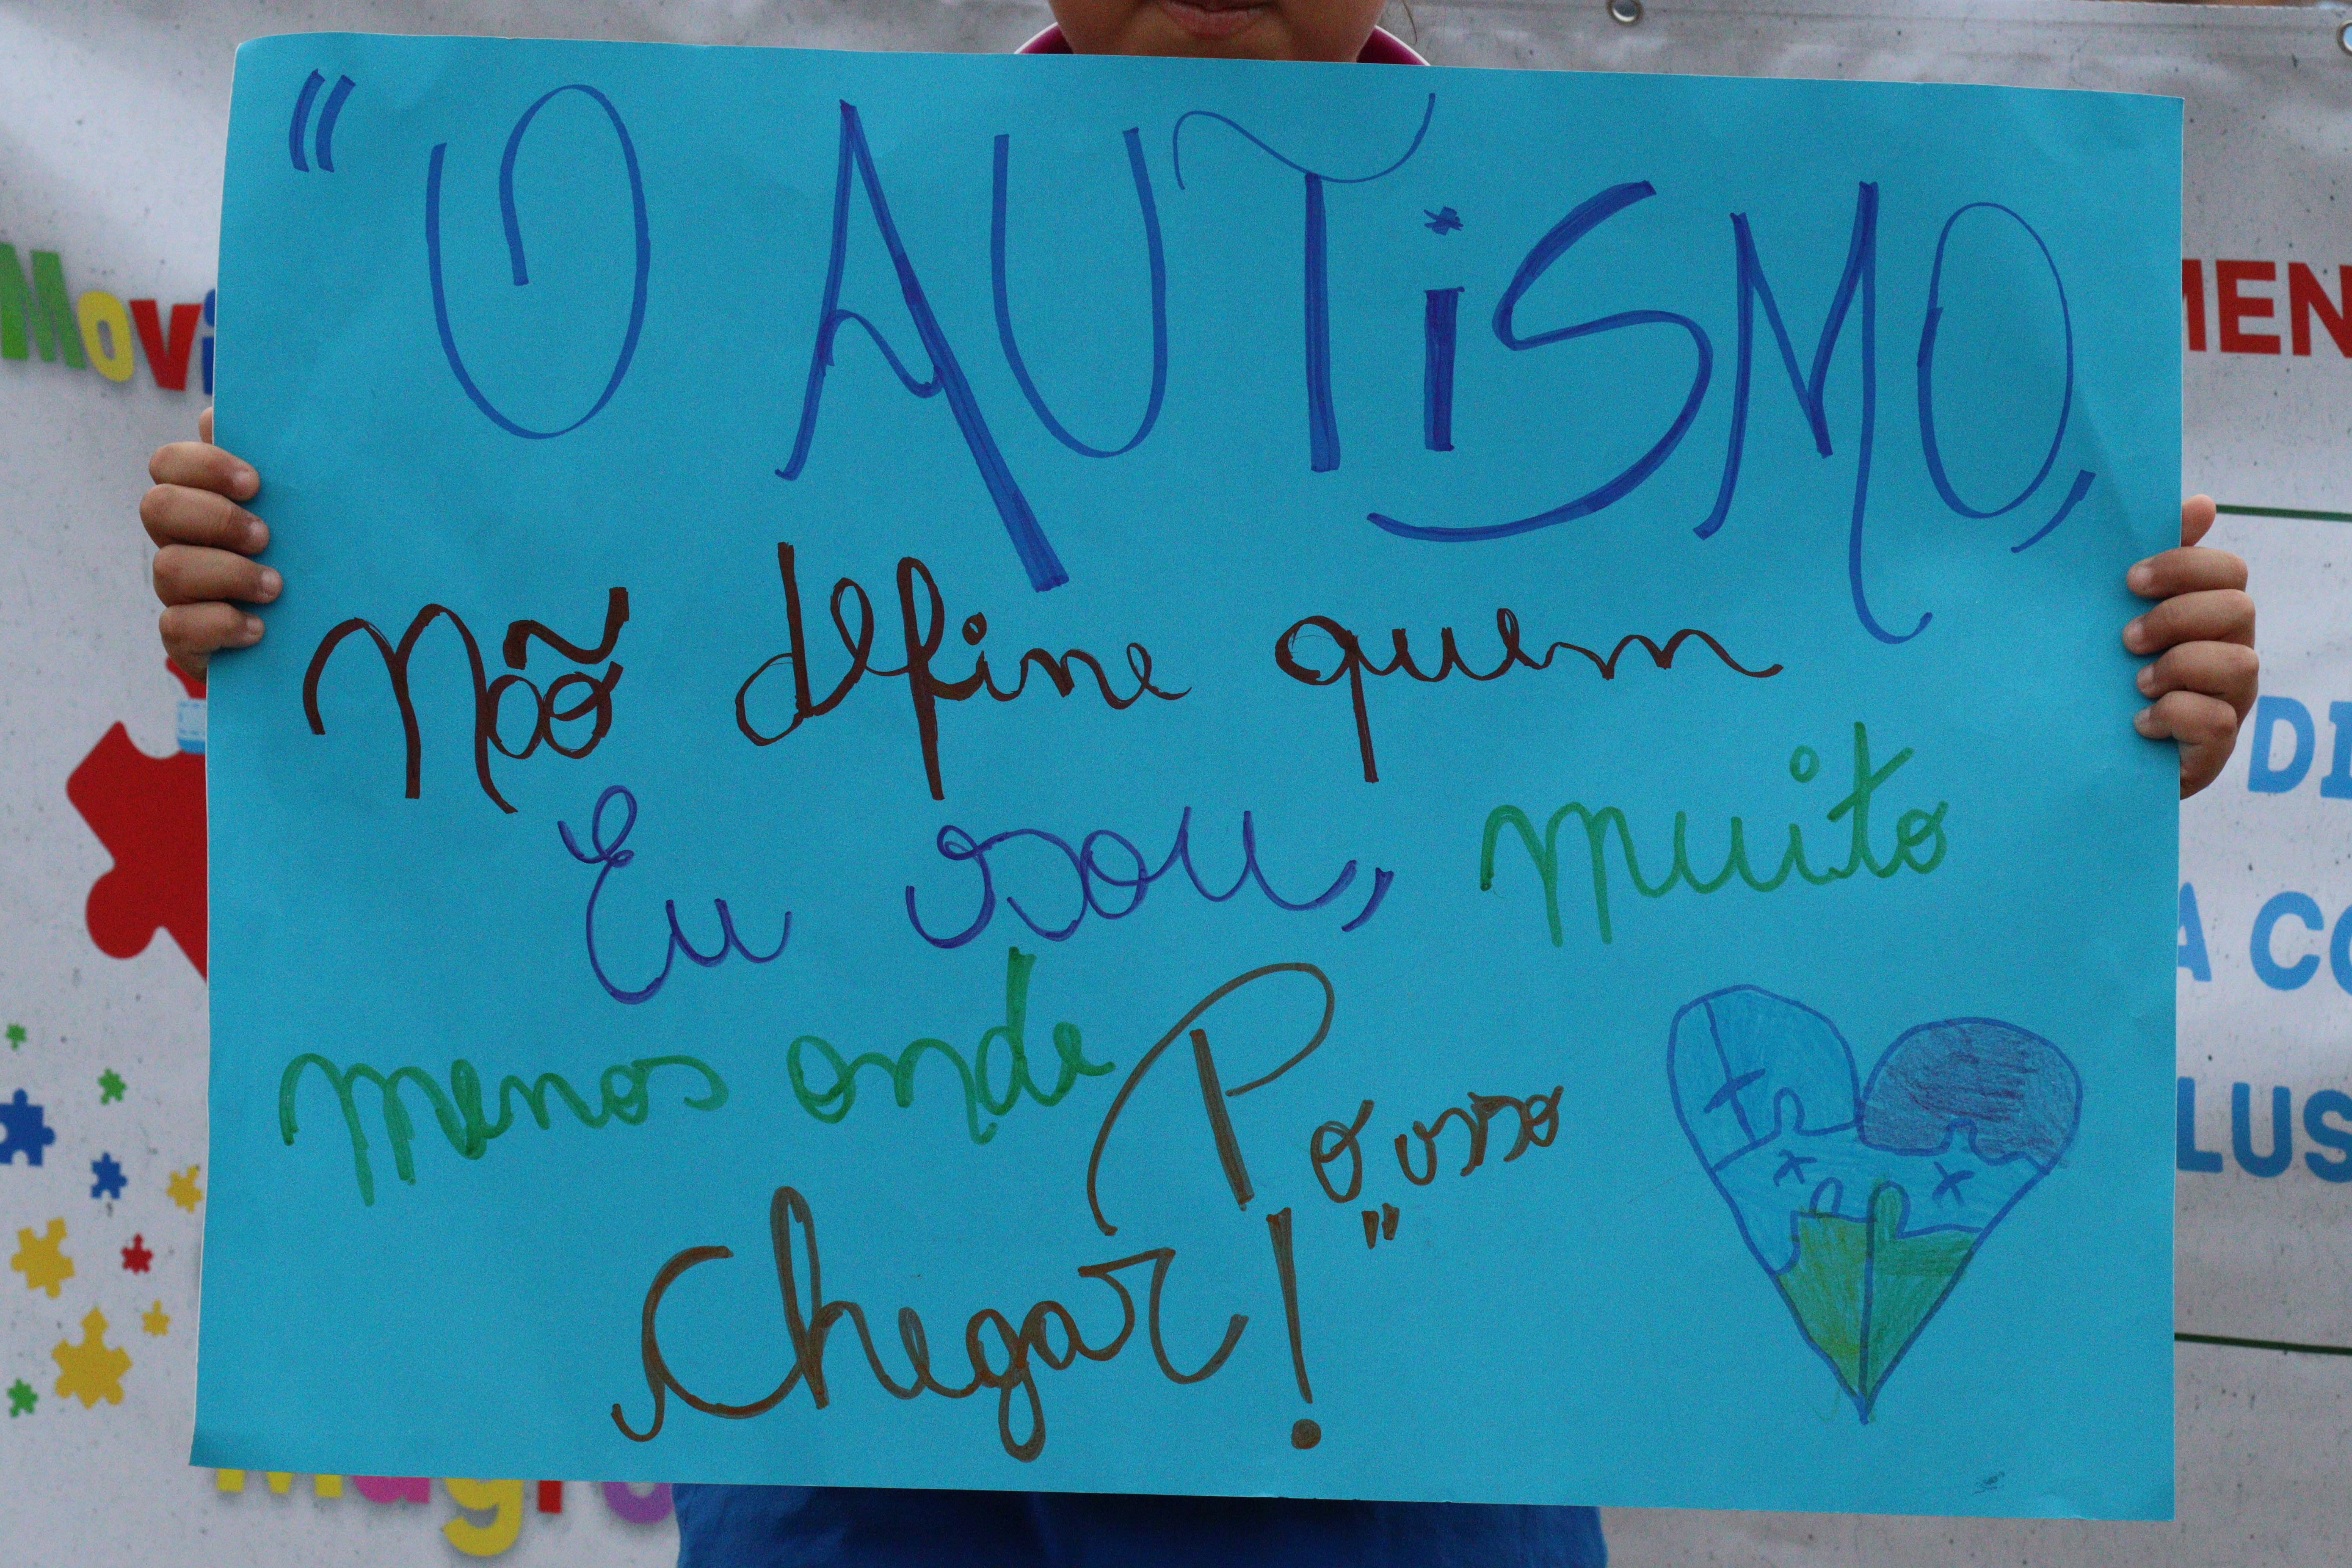 "O AUTiSMO,
Não define quem
Eu sou, muito
menos onde Posso
Chegar!"
Movi
MEN
DI
A CO
LUS